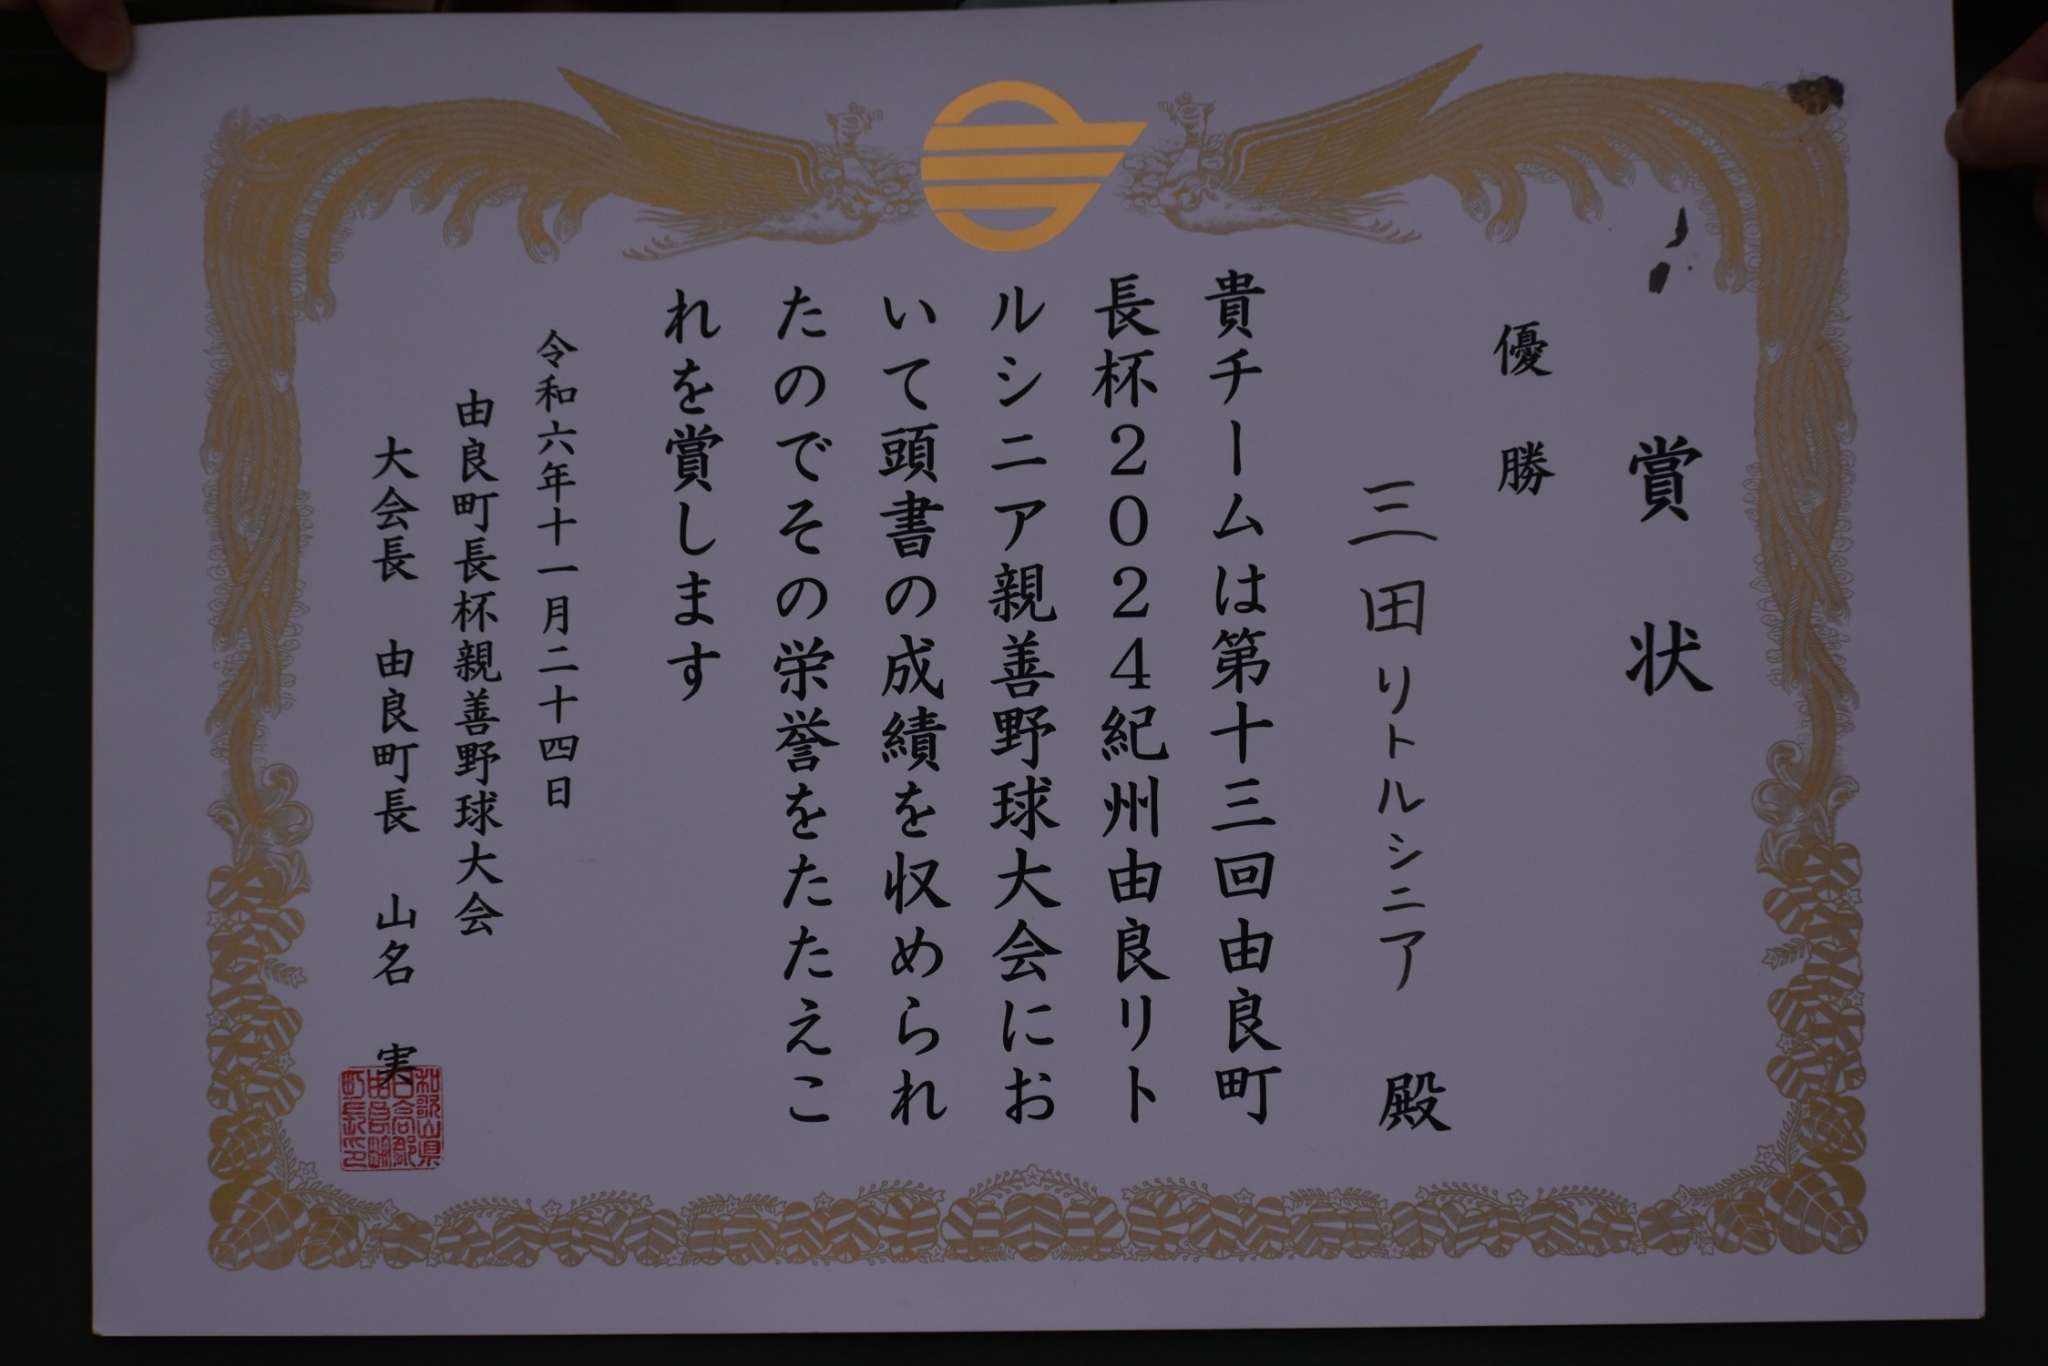 賞状
優勝
三田リトルシニア 殿
貴チームは第十三回由良町
長杯2024紀州由良リト
ルシニア親善野球大会にお
いて頭書の成績を収められ
たのでその栄誉をたたえこ
れを賞します
令和六年十一月二十四日
由良町長杯親善野球大会
大会長 由良町長 山名 実
和歌山県
日高郡
由良町
町長印